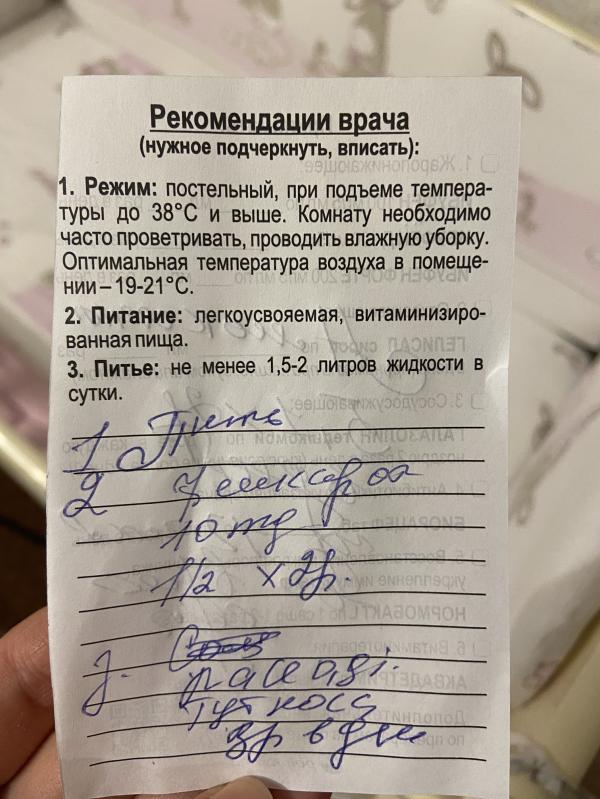 Рекомендации врача
(нужное подчеркнуть, вписать):
1. Режим: постельный, при подъеме темпера-
туры до 38°С и выше. Комнату необходимо
часто проветривать, проводить влажную уборку.
Оптимальная температура воздуха в помеще-
нии – 19-21°С.
2. Питание: легкоусвояемая, витаминизиро-
ванная пища.
3. Питье: не менее 1,5-2 литров жидкости в
сутки.
1 Пить
2
10 mg
1/2 х 2р.
3.
носа
3р в дн